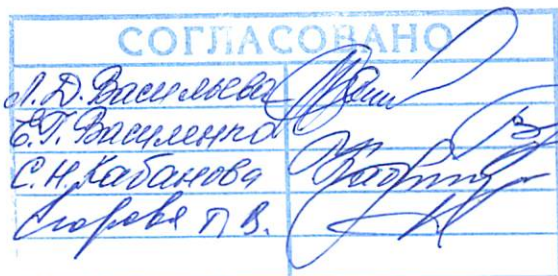 СОГЛАСОВАНО
Л.Д. Васильева
Е.П. Василенко
С.Н. Кабанова
Егорова П.В.